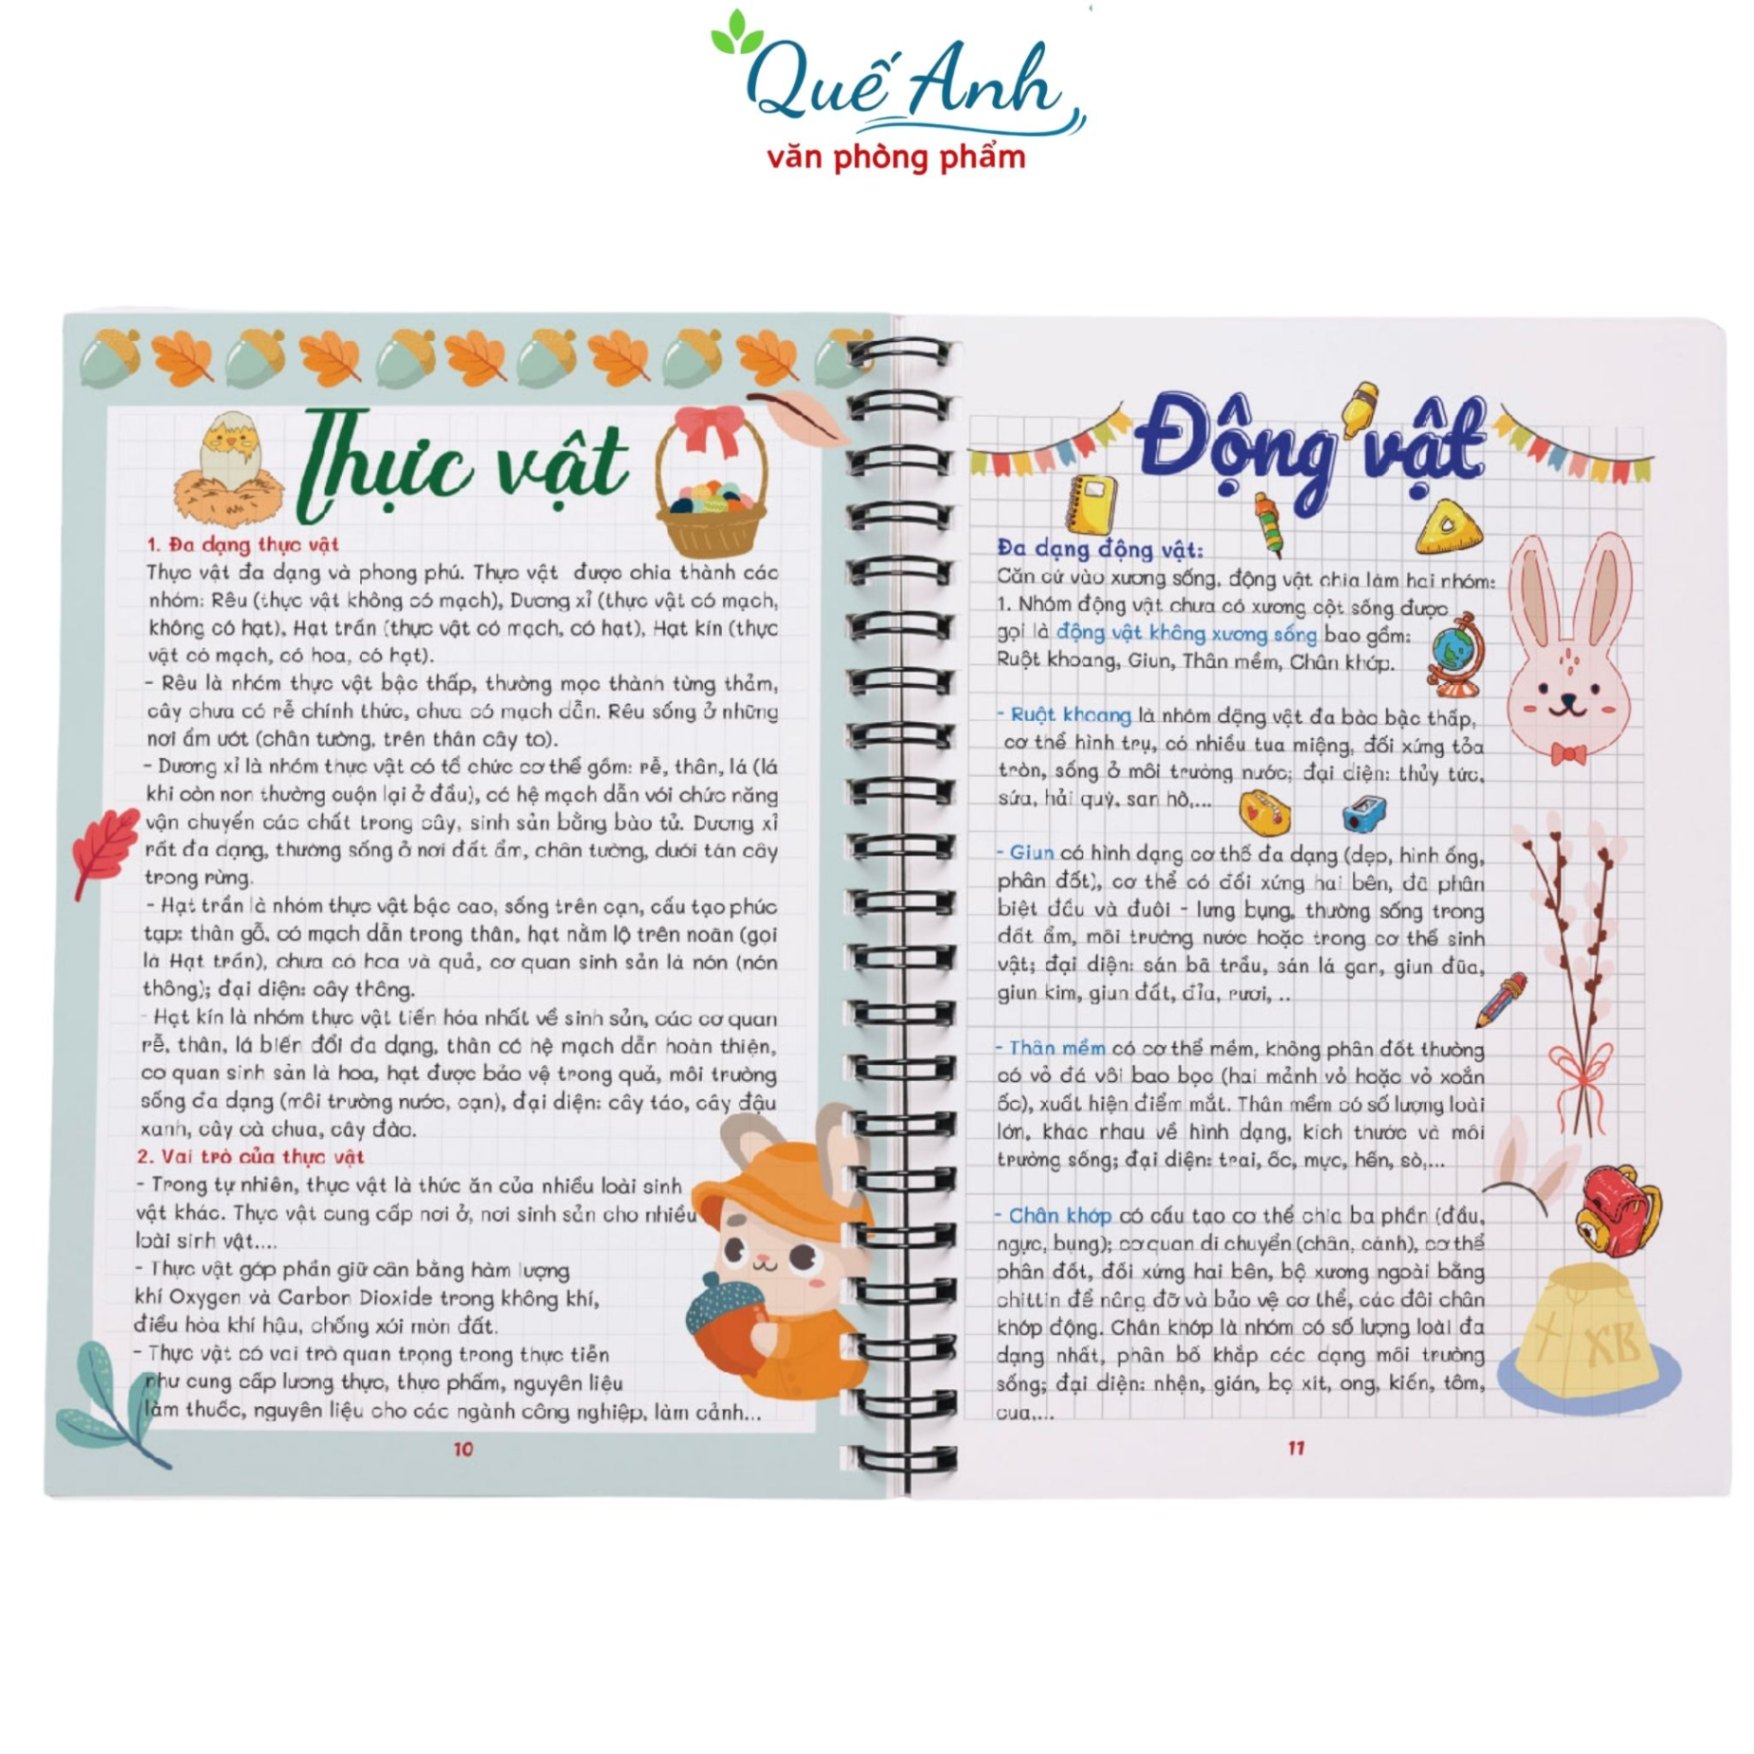 Quế Anh
văn phòng phẩm
Thực vật
1. Đa dạng thực vật
Thực vật đa dạng và phong phú. Thực vật được chia thành các
nhóm: Rêu (thực vật không có mạch), Dương xỉ (thực vật có mạch,
không có hạt), Hạt trần (thực vật có mạch, có hạt), Hạt kín (thực
vật có mạch, có hoa, có hạt).
- Rêu là nhóm thực vật bậc thấp, thường mọc thành từng thảm,
cây chưa có rễ chính thức, chưa có mạch dẫn. Rêu sống ở những
nơi ẩm ướt (chân tường, trên thân cây to).
- Dương xỉ là nhóm thực vật có tổ chức cơ thể gồm: rễ, thân, lá (lá
khi còn non thường cuộn lại ở đầu), có hệ mạch dẫn với chức năng
vận chuyển các chất trong cây, sinh sản bằng bào tử. Dương xỉ
rất đa dạng, thường sống ở nơi đất ẩm, chân tường, dưới tán cây
trong rừng.
- Hạt trần là nhóm thực vật bậc cao, sống trên cạn, cấu tạo phức
tạp: thân gỗ, có mạch dẫn trong thân, hạt nằm lộ trên noãn (gọi
là Hạt trần), chưa có hoa và quả, cơ quan sinh sản là nón (nón
thông); đại diện: cây thông.
- Hạt kín là nhóm thực vật tiến hóa nhất về sinh sản, các cơ quan
rễ, thân, lá biến đổi đa dạng, thân có hệ mạch dẫn hoàn thiện,
cơ quan sinh sản là hoa, hạt được bảo vệ trong quả, môi trường
sống đa dạng (môi trường nước, cạn), đại diện: cây táo, cây đậu
xanh, cây cà chua, cây đào.
2. Vai trò của thực vật
- Trong tự nhiên, thực vật là thức ăn của nhiều loài sinh
vật khác. Thực vật cung cấp nơi ở, nơi sinh sản cho nhiều
loài sinh vật....
- Thực vật góp phần giữ cân bằng hàm lượng
khí Oxygen và Carbon Dioxide trong không khí,
điều hòa khí hậu, chống xói mòn đất.
- Thực vật có vai trò quan trọng trong thực tiễn
như cung cấp lương thực, thực phẩm, nguyên liệu
làm thuốc, nguyên liệu cho các ngành công nghiệp, làm cảnh...
10
Động vật
Đa dạng động vật:
Căn cứ vào xương sống, động vật chia làm hai nhóm:
1. Nhóm động vật chưa có xương cột sống được
gọi là động vật không xương sống bao gồm:
Ruột khoang, Giun, Thân mềm, Chân khớp.
- Ruột khoang là nhóm động vật đa bào bậc thấp,
cơ thể hình trụ, có nhiều tua miệng, đối xứng tỏa
tròn, sống ở môi trường nước; đại diện: thủy tức,
sứa, hải quỳ, san hô,...
- Giun có hình dạng cơ thể đa dạng (dẹp, hình ống,
phân đốt), cơ thể có đối xứng hai bên, đã phân
biệt đầu và đuôi - lưng bụng, thường sống trong
đất ẩm, môi trường nước hoặc trong cơ thể sinh
vật; đại diện: sán bã trầu, sán lá gan, giun đũa,
giun kim, giun đất, đỉa, rươi, ..
- Thân mềm có cơ thể mềm, không phân đốt thường
có vỏ đá vôi bao bọc (hai mảnh vỏ hoặc vỏ xoắn
ốc), xuất hiện điểm mắt. Thân mềm có số lượng loài
lớn, khác nhau về hình dạng, kích thước và môi
trường sống; đại diện: trai, ốc, mực, hến, sò,...
- Chân khớp có cấu tạo cơ thể chia ba phần (đầu,
ngực, bụng); cơ quan di chuyển (chân, cánh), cơ thể
phân đốt, đối xứng hai bên, bộ xương ngoài bằng
chittin để nâng đỡ và bảo vệ cơ thể, các đôi chân
khớp động. Chân khớp là nhóm có số lượng loài đa
dạng nhất, phân bố khắp các dạng môi trường
sống; đại diện: nhện, gián, bọ xít, ong, kiến, tôm,
cua,...
XB
11